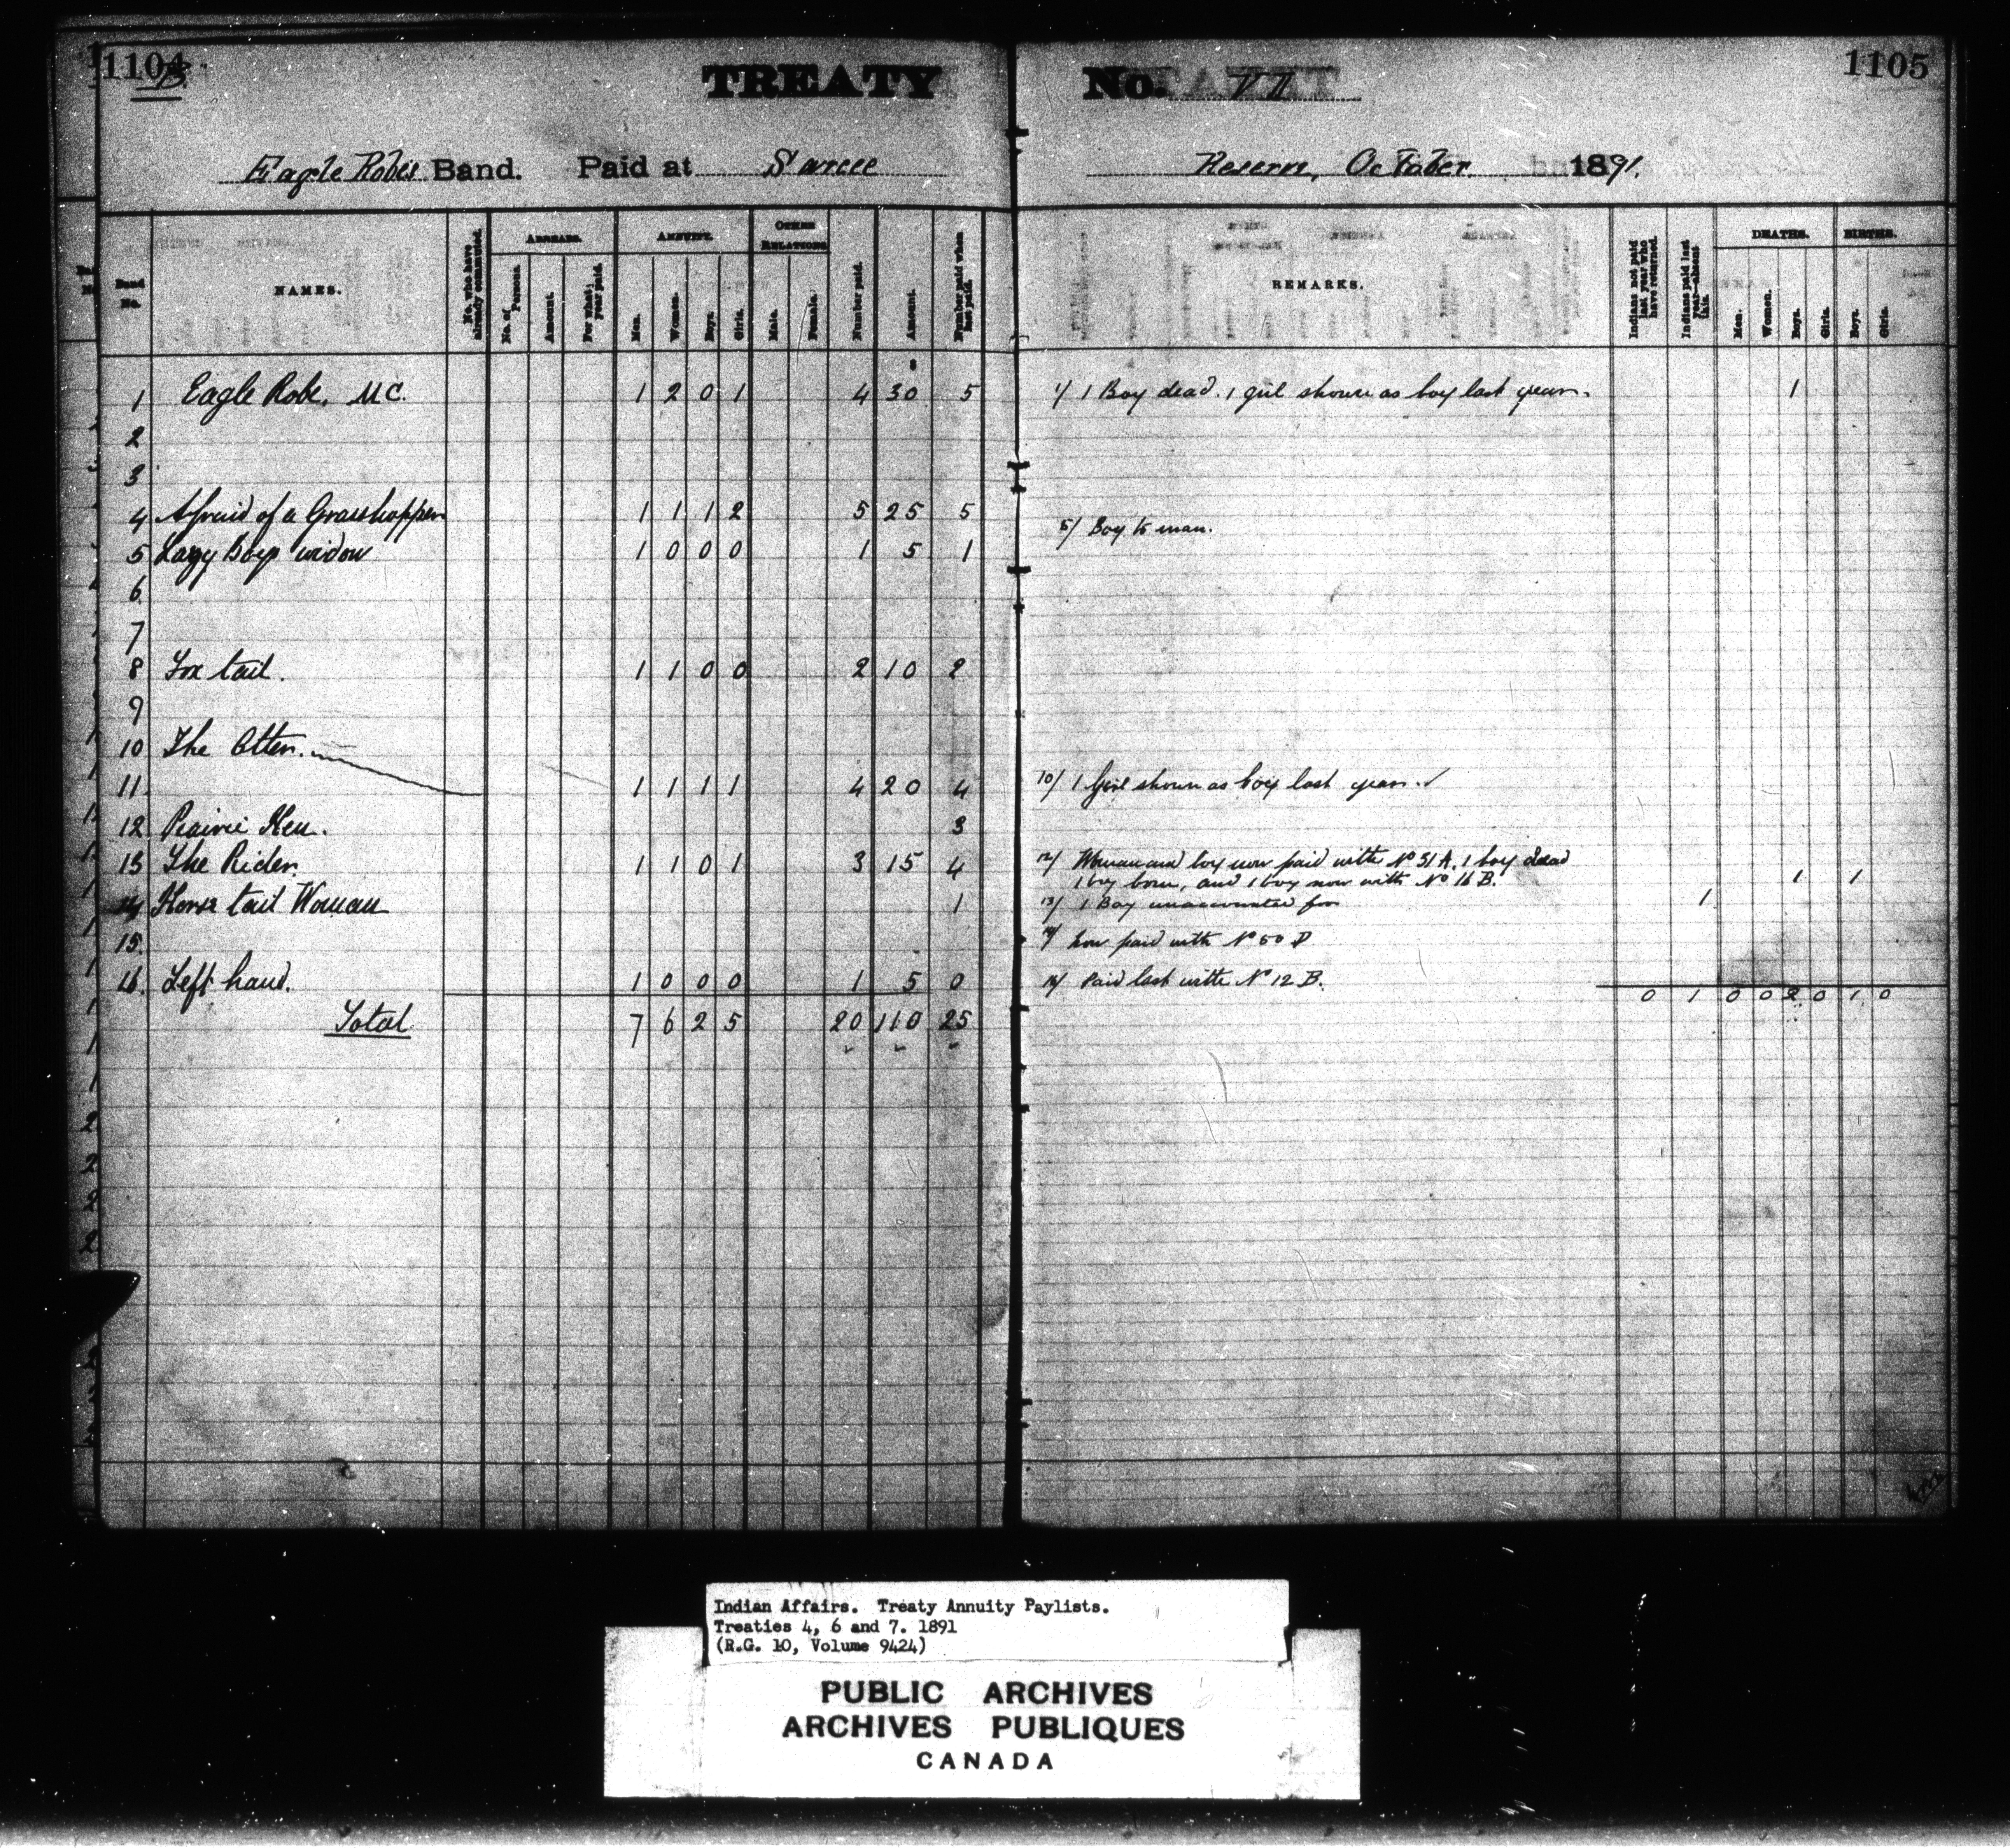 1104 B. TREATY No. VII 1105
Eagle Robe's Band. Paid at Sarcee Reserve, October 1891.
Band No. NAMES. No. who have already commuted. ARREARS. No. of Persons. Amount. For what year paid. ANNUITY. Men. Women. Boys. Girls. OTHER RELATIONS. Male. Female. Number paid. Amount. Number paid when last paid. REMARKS. Indians not paid last year who have returned. Indians paid last year—absent this. DEATHS. Men. Women. Boys. Girls. BIRTHS. Boys. Girls.
1 Eagle Robe, M.C. 1 2 0 1 4 30 5 1/ 1 Boy dead. 1 girl shown as boy last year. 1
2
3
4 Afraid of a Grasshopper 1 1 1 2 5 25 5
5/ Boy to man.
5 Lazy Boys widow 1 0 0 0 1 5 1
6
7
8 Fox tail. 1 1 0 0 2 10 2
9
10 The Otter.
11 1 1 1 1 4 20 4 10/ 1 Girl shown as boy last year. ✓
12 Prairie Hen. 3
13 The Rider. 1 1 0 1 3 15 4 12/ Woman and boy now paid with No 51 A. 1 boy dead
1 boy born, and 1 boy now with No 16 B. 1 1
14 Horse tail Woman 1 13/ 1 Boy unaccounted for 1
15. 14/ Now paid with No 50 D
16. Left hand. 1 0 0 0 1 5 0 16/ Paid last with No 12 B.
0 1 0 0 2 0 1 0
Total 7 6 2 5 20 110 25
Indian Affairs. Treaty Annuity Paylists.
Treaties 4, 6 and 7. 1891
(R.G. 10, Volume 9424)
PUBLIC ARCHIVES
ARCHIVES PUBLIQUES
CANADA